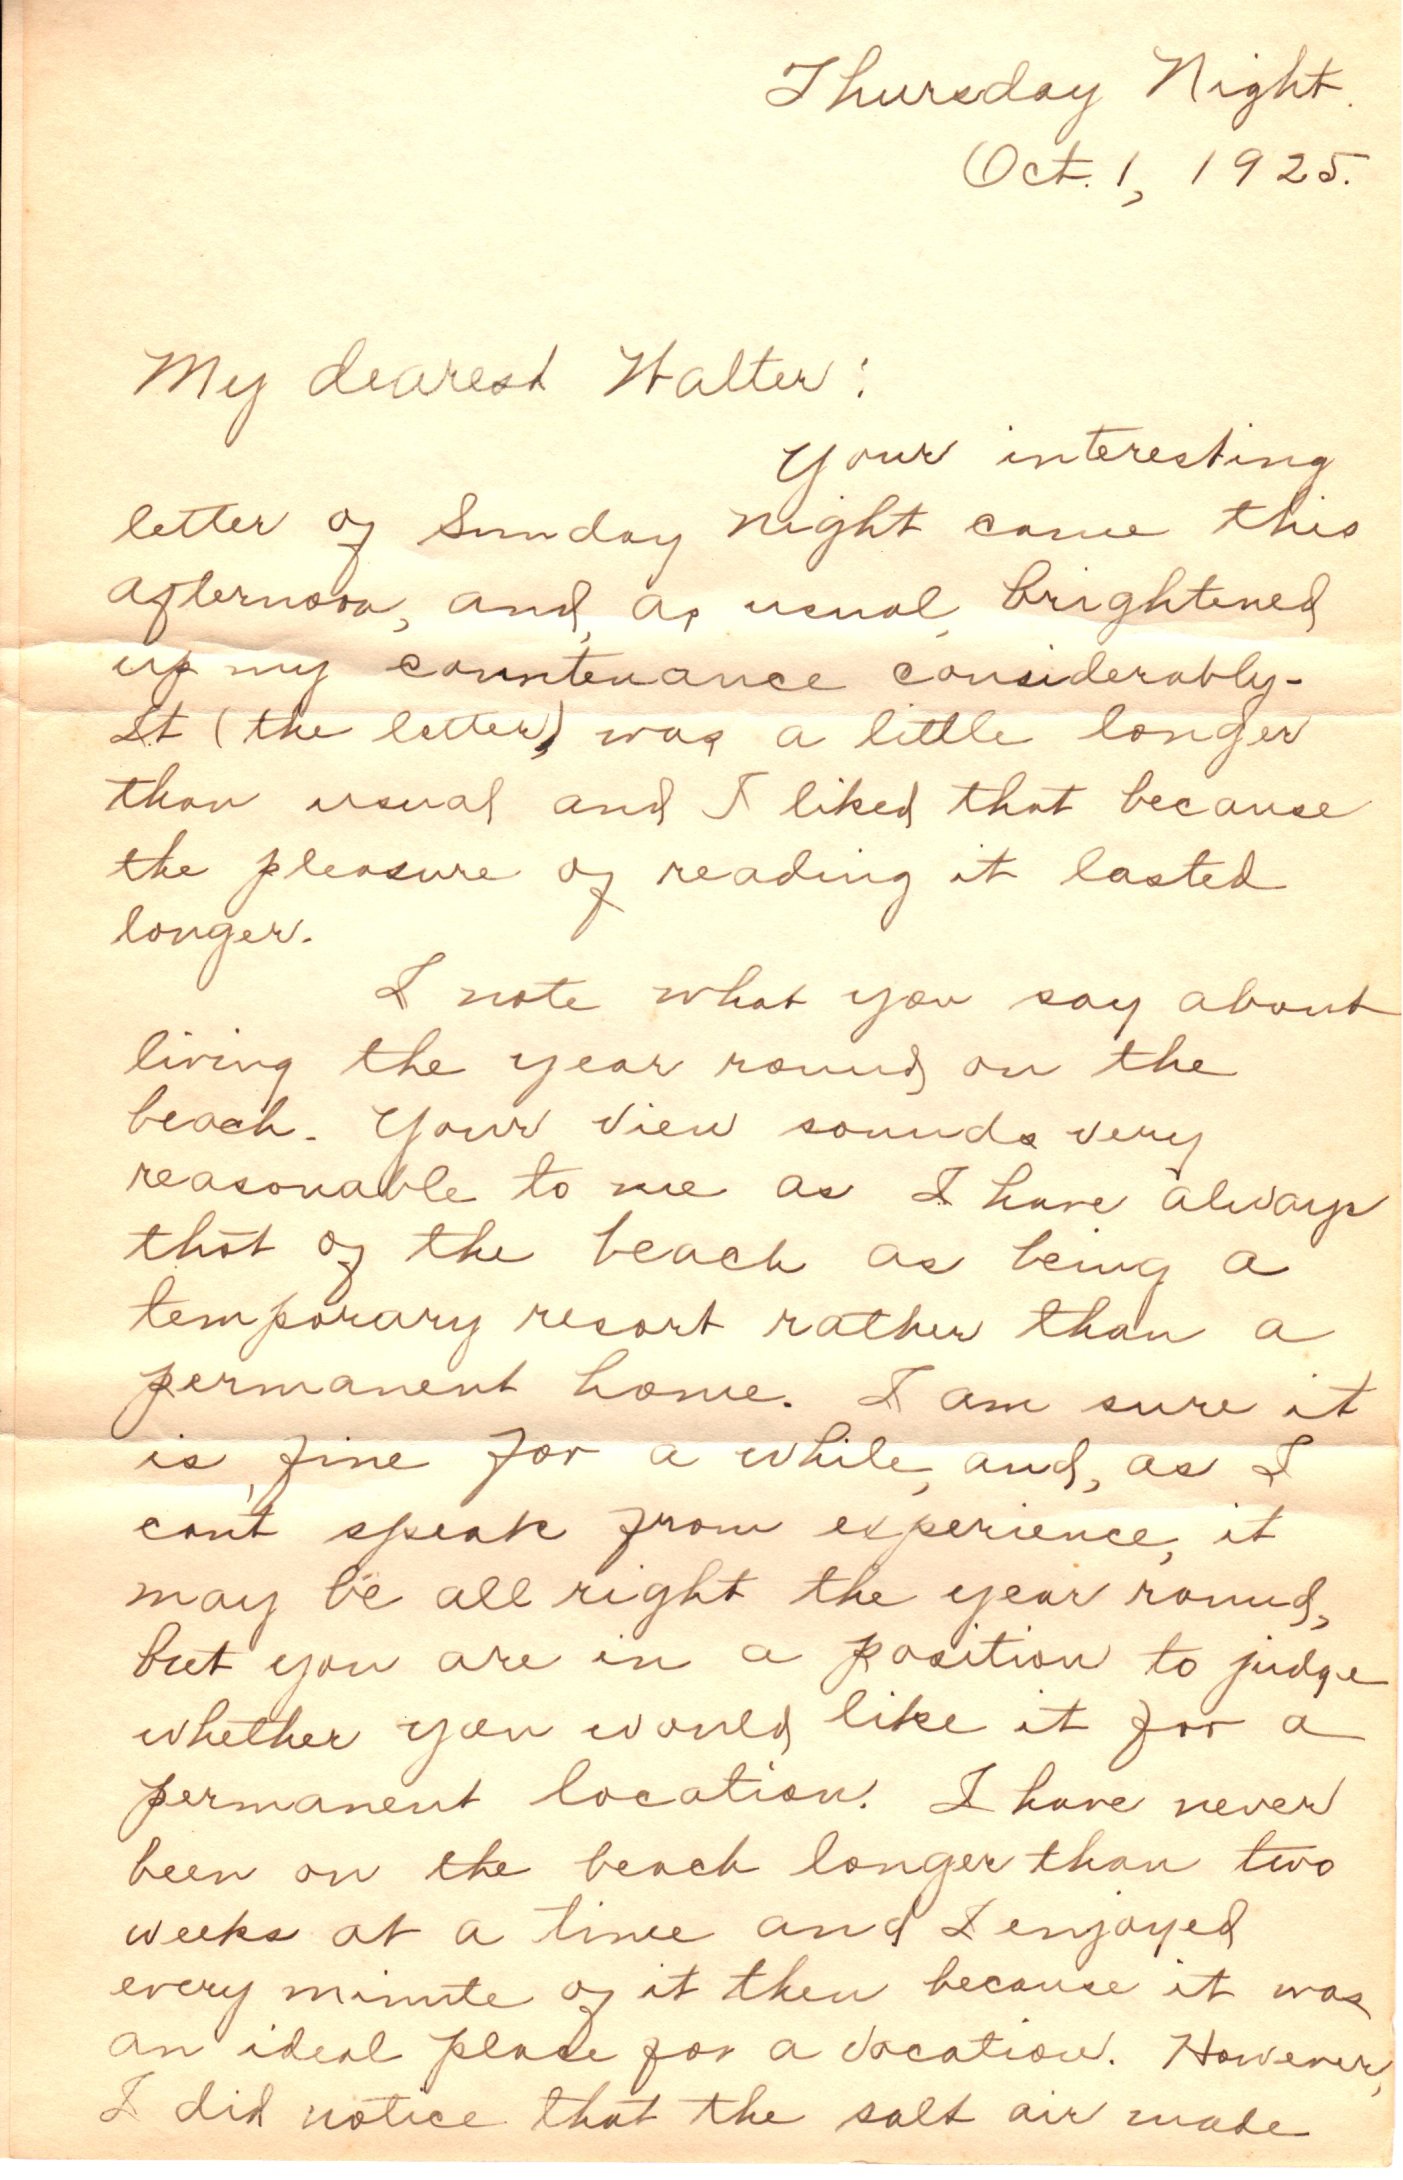 Thursday Night.
Oct. 1, 1925.
My dearest Walter:
Your interesting
letter of Sunday night came this
afternoon, and, as usual, brightened
up my countenance considerably-
It (the letter) was a little longer
than usual and I liked that because
the pleasure of reading it lasted
longer.
I note what you say about
living the year round on the
beach. Your view sounds very
reasonable to me as I have always
thot of the beach as being a
temporary resort rather than a
permanent home. I am sure it
is fine for a while, and, as I
can't speak from experience, it
may be all right the year round,
but you are in a position to judge
whether you would like it for a
permanent location. I have never
been on the beach longer than two
weeks at a time and I enjoyed
every minute of it then because it was
an ideal place for a vacation. However,
I did notice that the salt air made